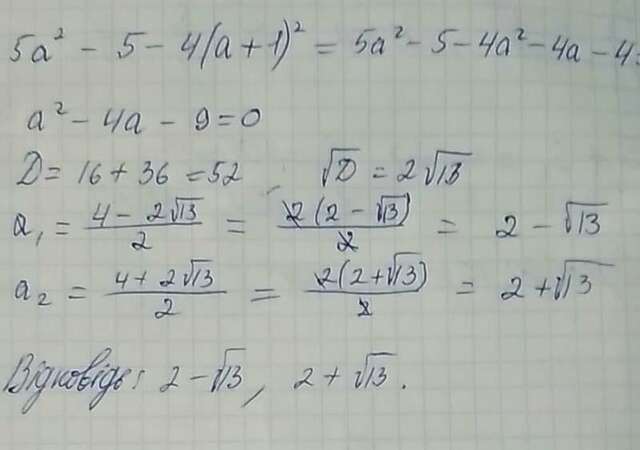 5a² - 5 - 4(a + 1)² = 5a² - 5 - 4a² - 4a - 4 =
a² - 4a - 9 = 0
D = 16 + 36 = 52 √D = 2√13
a₁ = (4 - 2√13)/2 = 2(2 - √13)/2 = 2 - √13
a₂ = (4 + 2√13)/2 = 2(2 + √13)/2 = 2 + √13
Відповідь: 2 - √13, 2 + √13.